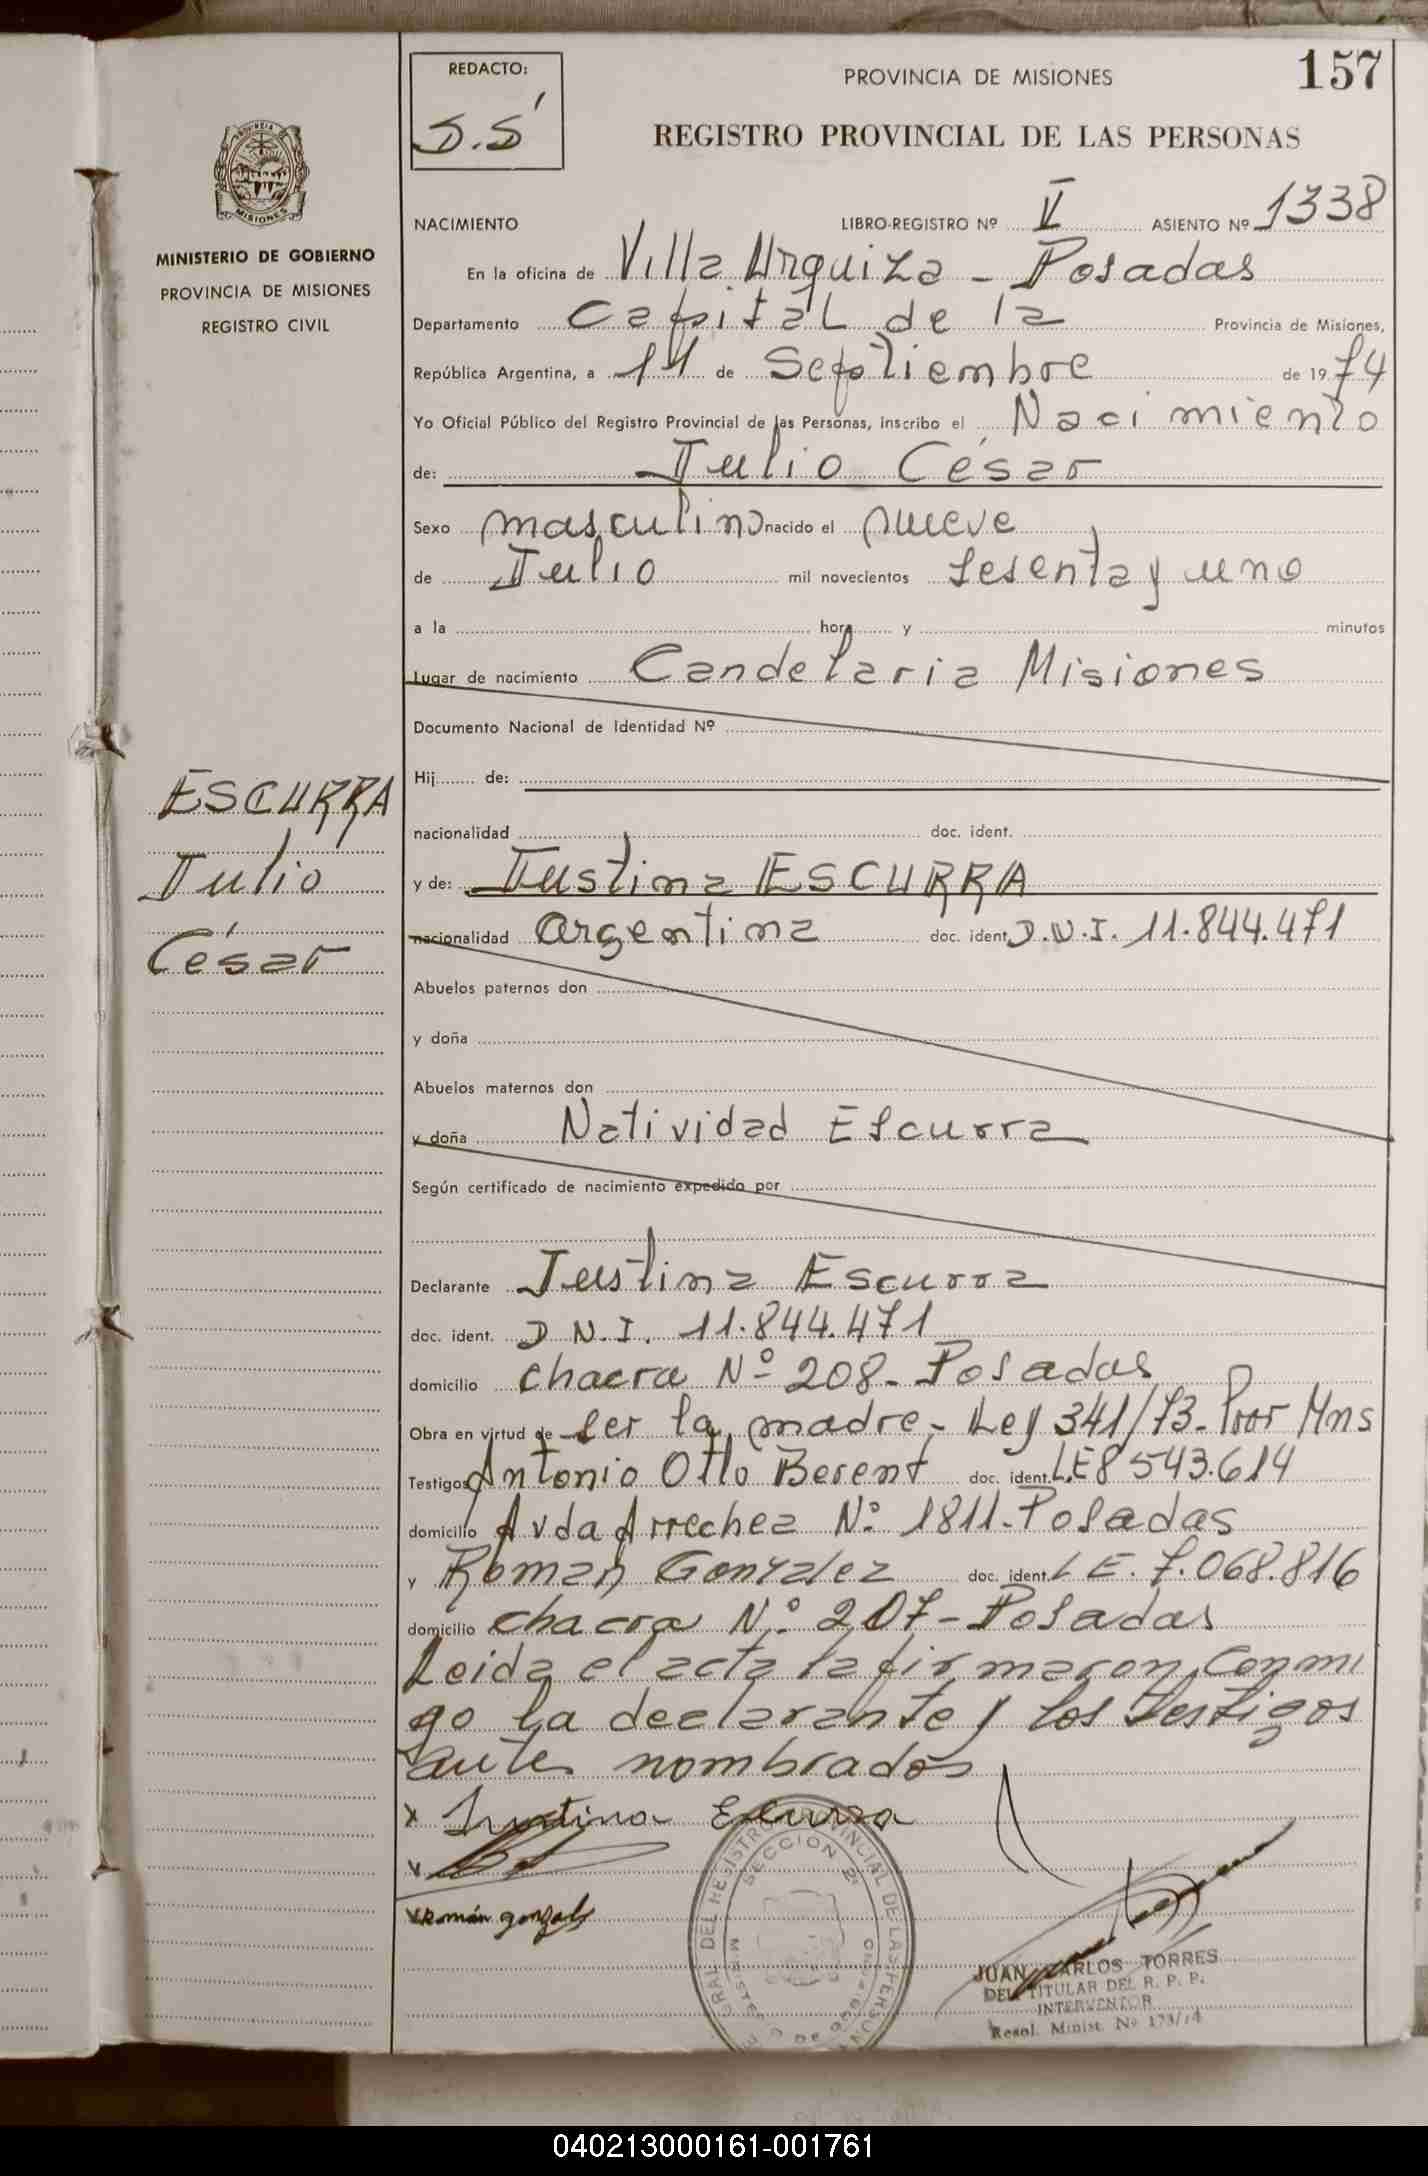 REDACTO:
S.S
PROVINCIA DE MISIONES
157
REGISTRO PROVINCIAL DE LAS PERSONAS
PROVINCIA DE
MISIONES
MINISTERIO DE GOBIERNO
PROVINCIA DE MISIONES
REGISTRO CIVIL
NACIMIENTO LIBRO-REGISTRO Nº V ASIENTO Nº 1338
En la oficina de Villa Urquiza - Posadas
Departamento Capital de la Provincia de Misiones,
República Argentina, a 11 de Septiembre de 1974
Yo Oficial Público del Registro Provincial de las Personas, inscribo el Nacimiento
de: Julio César
Sexo masculino nacido el nueve
de Julio mil novecientos sesenta y uno
a la hora y minutos
Lugar de nacimiento Candelaria Misiones
Documento Nacional de Identidad Nº
Hij de:
nacionalidad doc. ident.
y de: Justina ESCURRA
nacionalidad Argentina doc. ident. D.N.I. 11.844.471
Abuelos paternos don
y doña
Abuelos maternos don
y doña Natividad Escurra
Según certificado de nacimiento expedido por
Declarante Justina Escurra
doc. ident. D N.I. 11.844.471
domicilio chacra Nº 208- Posadas
Obra en virtud de ser la madre- Ley 341/73- Mns
Testigos Antonio Otto Berent doc. ident. L.E 8 543.614
domicilio Avda Arrechea Nº 1811- Posadas
y Román González doc. ident. L E. 7.068.816
domicilio chacra Nº 207- Posadas
Leida el acta la firmaron conmi
go la declarante y los testigos
antes nombrados
x Justina Escurra
Román gonzalz
ESCURRA
Julio
César
SECCION 2ª
JUAN CARLOS TORRES
DEL. TITULAR DEL R. P. P.
INTERVENTOR
Resol. Minist. Nº 173/74
040213000161-001761